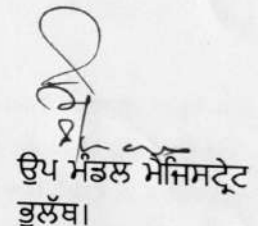 ਉਪ ਮੰਡਲ ਮੈਜਿਸਟ੍ਰੇਟ
ਭੁਲੱਥ।